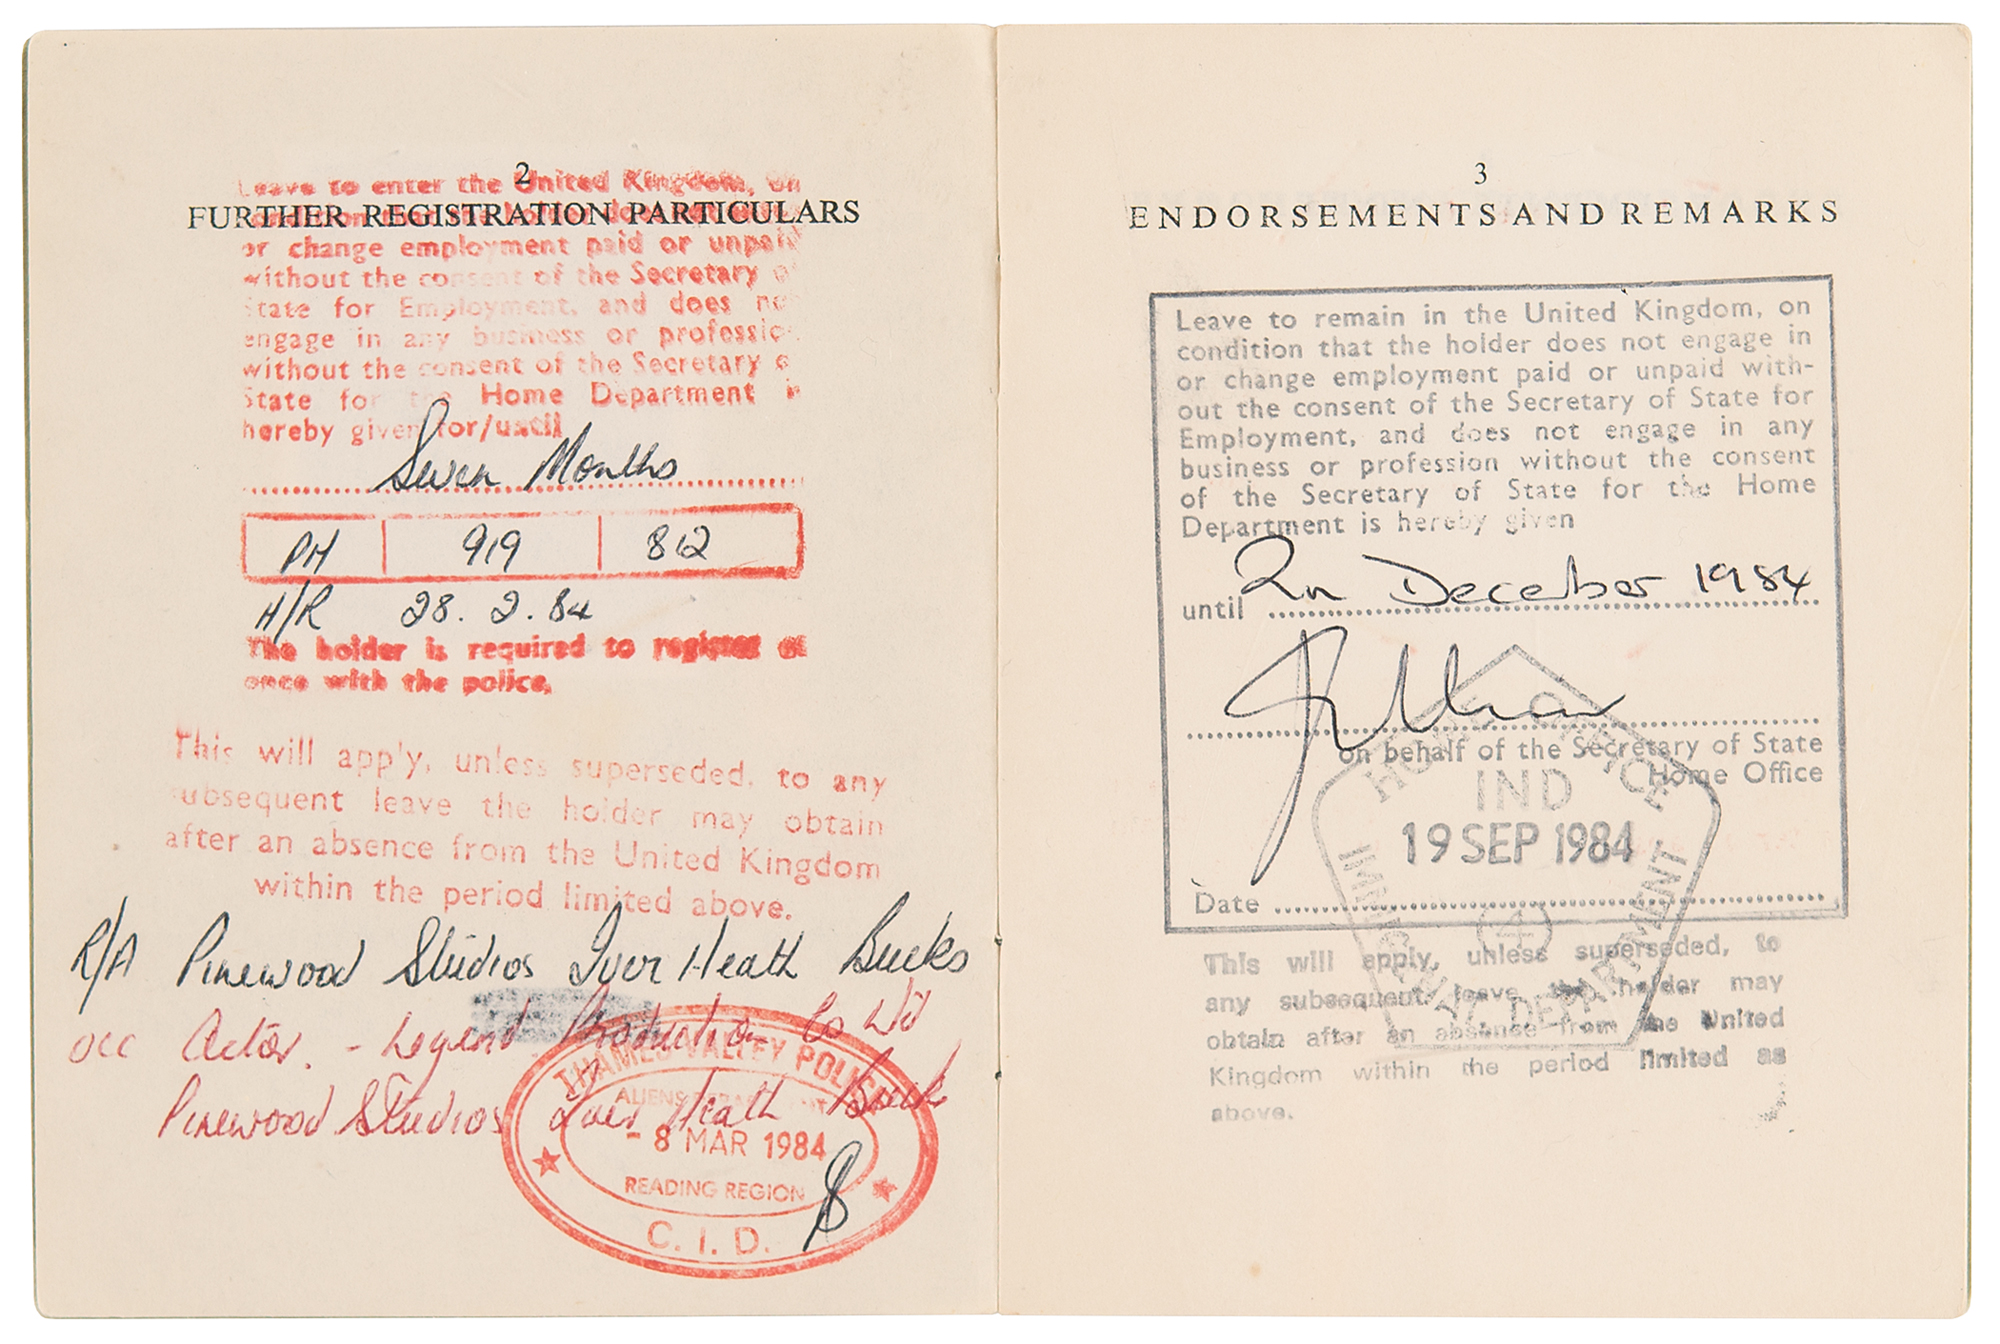 2
FURTHER REGISTRATION PARTICULARS
Leave to enter the United Kingdom, on
condition that the holder does
or change employment paid or unpaid
without the consent of the Secretary of
State for Employment, and does no
engage in any business or professio
without the consent of the Secretary o
State for the Home Department is
hereby given for/until
Seven Months
PH 919 812
H/R 28. 2. 84
The holder is required to register at
once with the police.
This will apply, unless superseded, to any
subsequent leave the holder may obtain
after an absence from the United Kingdom
within the period limited above.
R/A Pinewood Studios Iver Heath Bucks
occ Actor. - Legend Production Co Ltd
Pinewood Studios Iver Heath Bucks
THAMES VALLEY POLICE
ALIENS DEPARTMENT
- 8 MAR 1984
READING REGION
C.I.D.
3
ENDORSEMENTS AND REMARKS
Leave to remain in the United Kingdom, on
condition that the holder does not engage in
or change employment paid or unpaid with-
out the consent of the Secretary of State for
Employment, and does not engage in any
business or profession without the consent
of the Secretary of State for the Home
Department is hereby given
until 2n December 1984
on behalf of the Secretary of State
Home Office
HOME OFFICE
IND
19 SEP 1984
Date
4
IMMIGRATION & NATIONALITY DEPARTMENT
This will apply, unless superseded, to
any subsequent leave the holder may
obtain after an absence from the United
Kingdom within the period limited as
above.